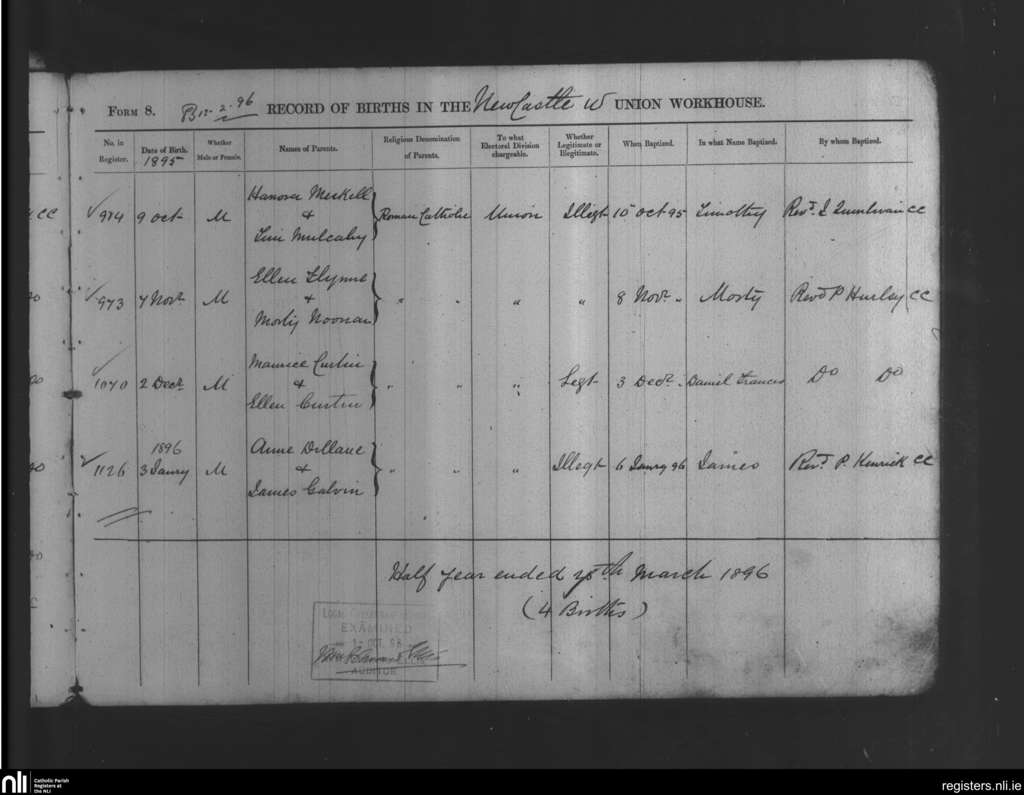 FORM 8. RECORD OF BIRTHS IN THE NewCastle W UNION WORKHOUSE.
No. in Register. Date of Birth. 1895 Whether Male or Female. Names of Parents. Religious Denomination of Parents. To what Electoral Division chargeable. Whether Legitimate or Illegitimate. When Baptized. In what Name Baptized. By whom Baptized.
CC
Hanora Meskell
984 9 Oct M & Roman Catholic Union Illegt 10 Oct 95 Timothy Revd. CC
Mulcahy
Ellen Flynne
973 7 Novr. M & " " " " 8 Novr. " Morty Revd P Hurley CC
Morty Noonan
Maurice Curtin
1070 2 Decr. M & " " " Legt 3 Decr. " Daniel Frances Do Do
Ellen Curtin
1896 Anne Dillane
1126 3 Janry M & " " " Illegt 6 Janry 96 James Revd. P. Kenrick CC
James Galvin
Half year ended March 1896
(4 Births)
EXAMINED
AUDITOR
nli Catholic Parish
Registers at
the NLI
registers.nli.ie